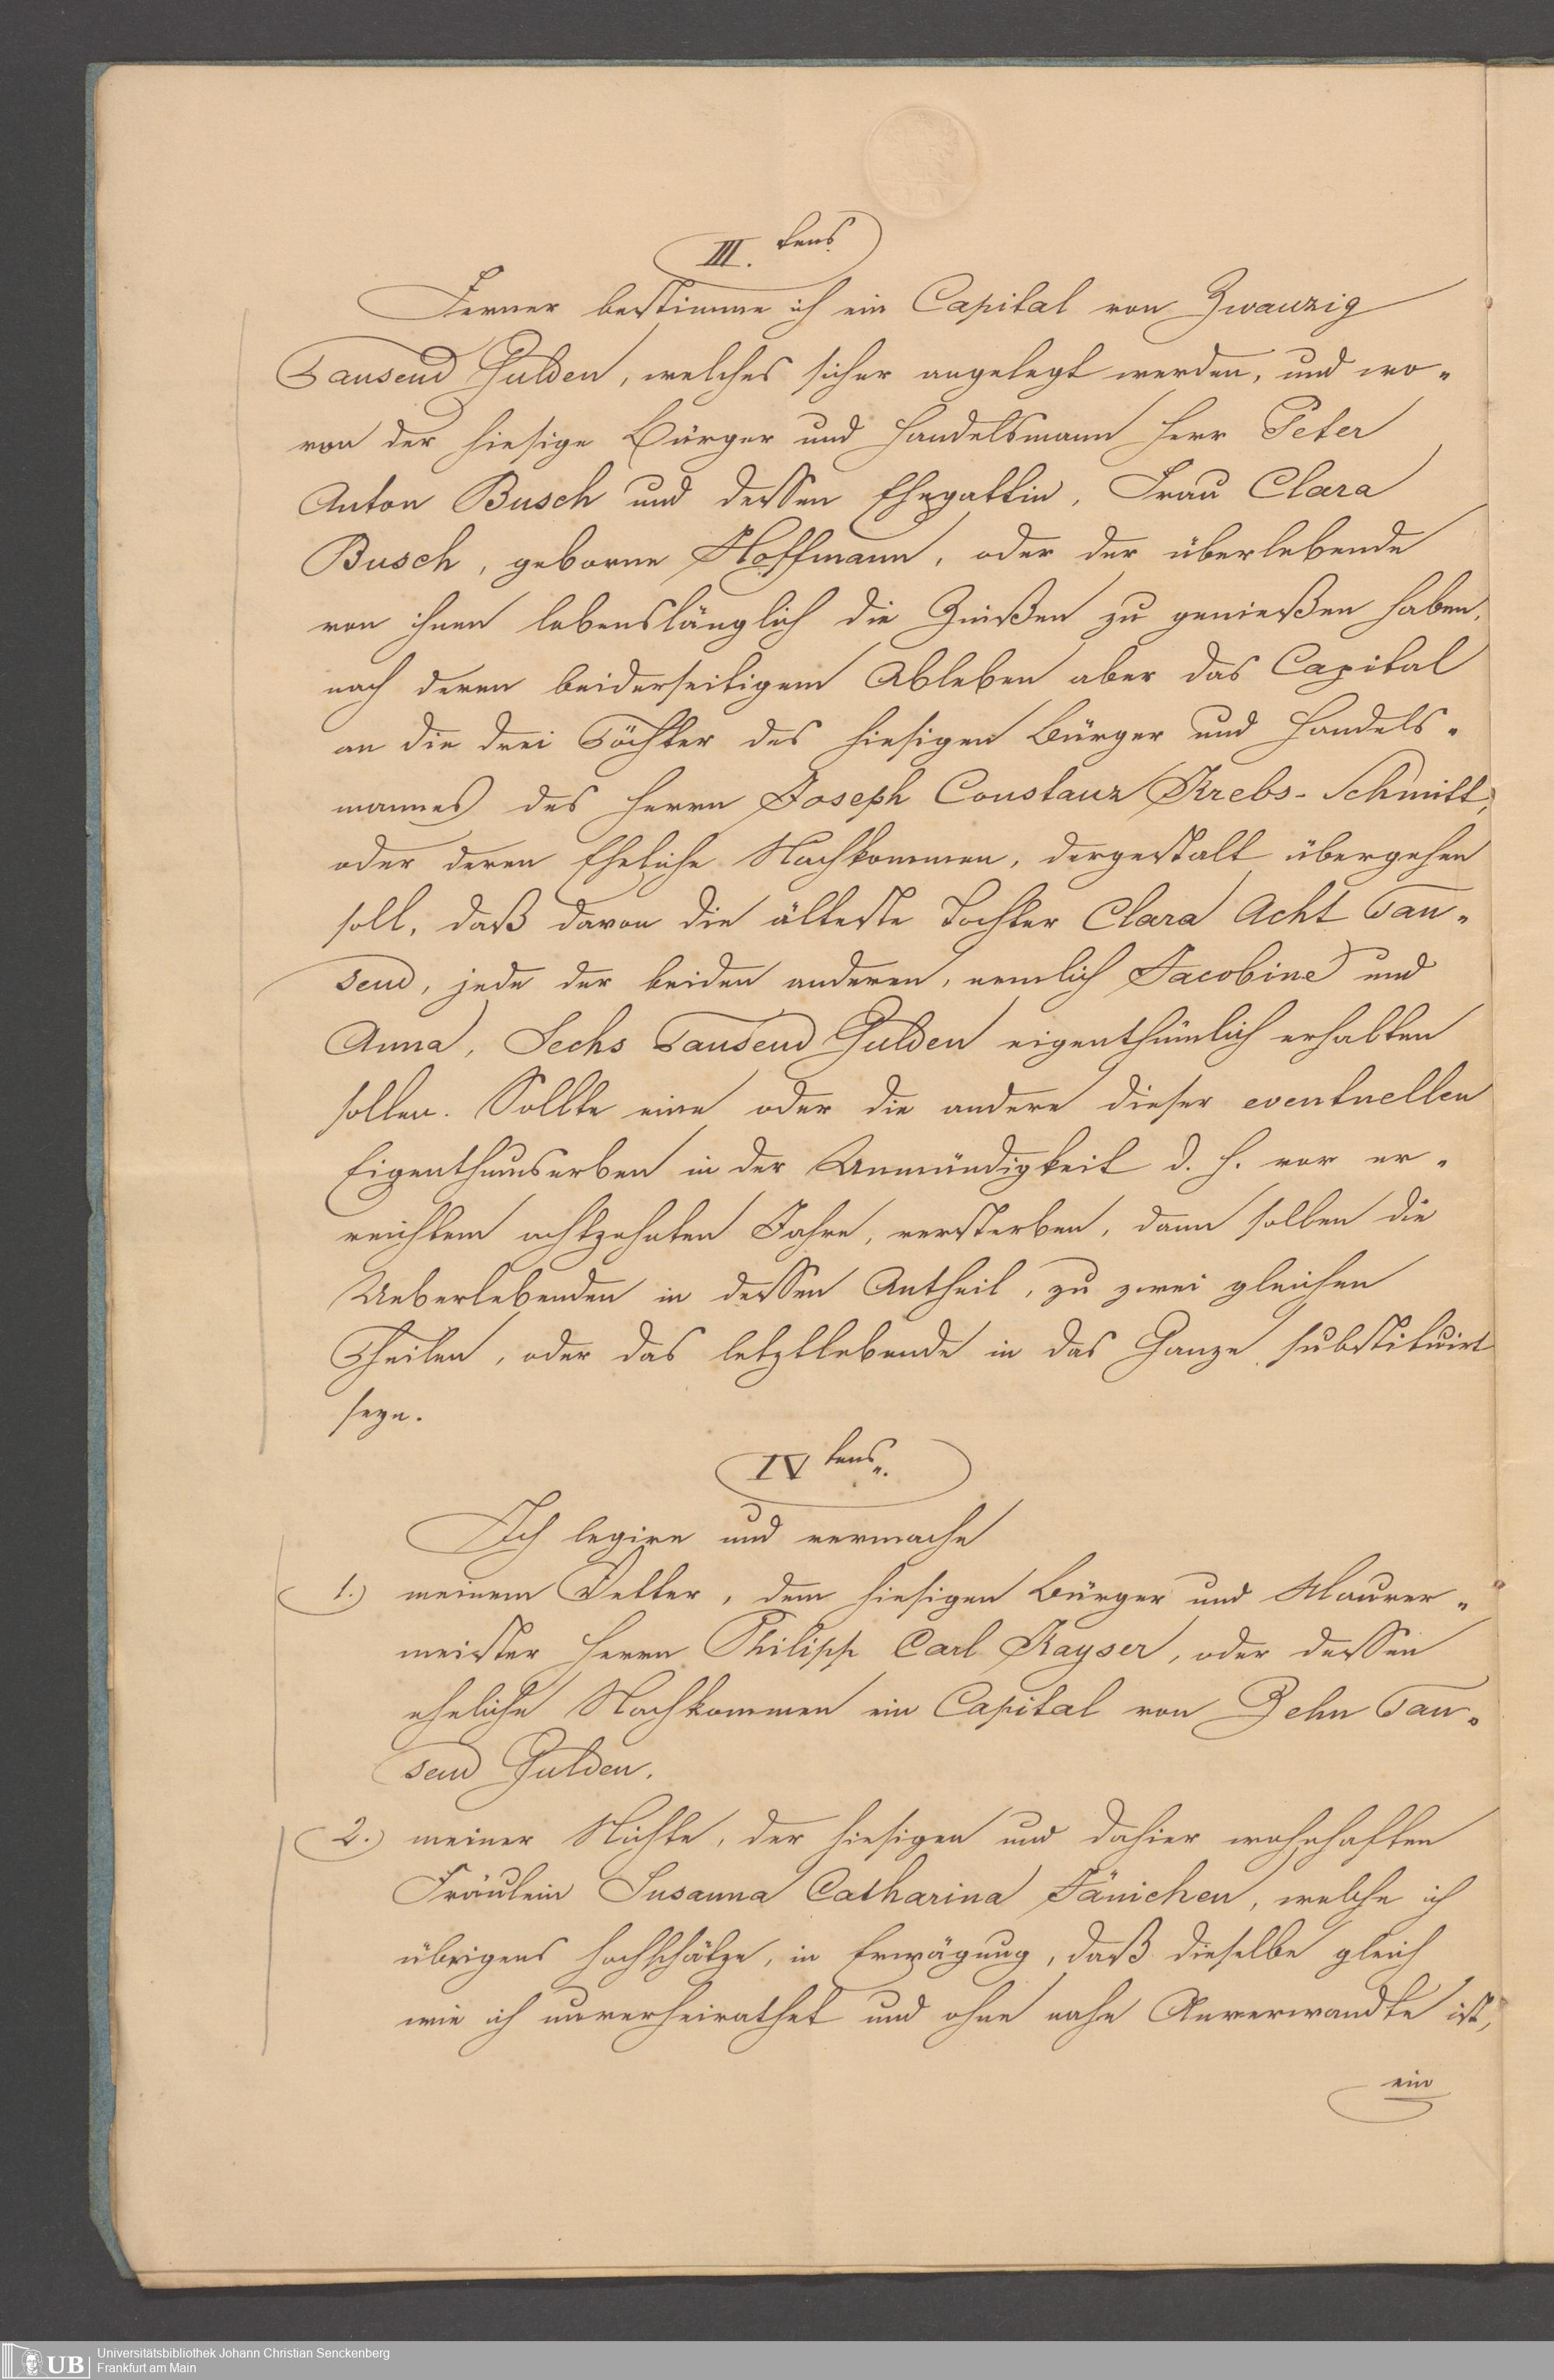 III. tens
Ferner bestimme ich ein Capital von Zwanzig
Tausend Gulden, welches sicher angelegt werden, und wo„
von der hiesige Bürger und Handelsmann Herr Peter
Anton Busch und dessen Ehegattin, Frau Clara
Busch, geborne Hoffmann, oder der überlebende
von ihnen lebenslänglich die Zinßen zu genießen haben,
nach deren beiderseitigem Ableben aber das Capital
an die drei Töchter des hiesigen Bürger und Handels„
mannes des Herrn Joseph Constanz Krebs-Schmitt,
oder deren Eheliche Nachkommen, dergestalt übergehen
soll, daß davon die älteste Tochter Clara Acht Tau„
send, jede der beiden anderen, nemlich Jacobine und
Anna, Sechs Tausend Gulden eigenthümlich erhalten
sollen. Sollte eine oder die andere dieser eventuellen
Eigenthumserben in der Unmündigkeit d. h. vor er„
reichtem achtzehnten Jahre, versterben, dann sollen die
Ueberlebenden in dessen Antheil, zu zwei gleichen
Theilen, oder das letztlebende in das Ganze substituirt
seyn.
IV tens„.
Ich legire und vermache
1.) meinem Vetter, dem hiesigen Bürger und Maurer„
meister Herrn Philipp Carl Kayser, oder dessen
eheliche Nachkommen ein Capital von Zehn Tau„
send Gulden.
2.) meiner Nichte, der hiesigen und dahier wohnhaften
Fräulein Susanna Catharina Jänichen, welche ich
übrigens hochschätze, in Erwägung, daß dieselbe gleich
wie ich unverheirathet und ohne nahe Anverwandte ist,
ein
UB
Universitätsbibliothek Johann Christian Senckenberg
Frankfurt am Main